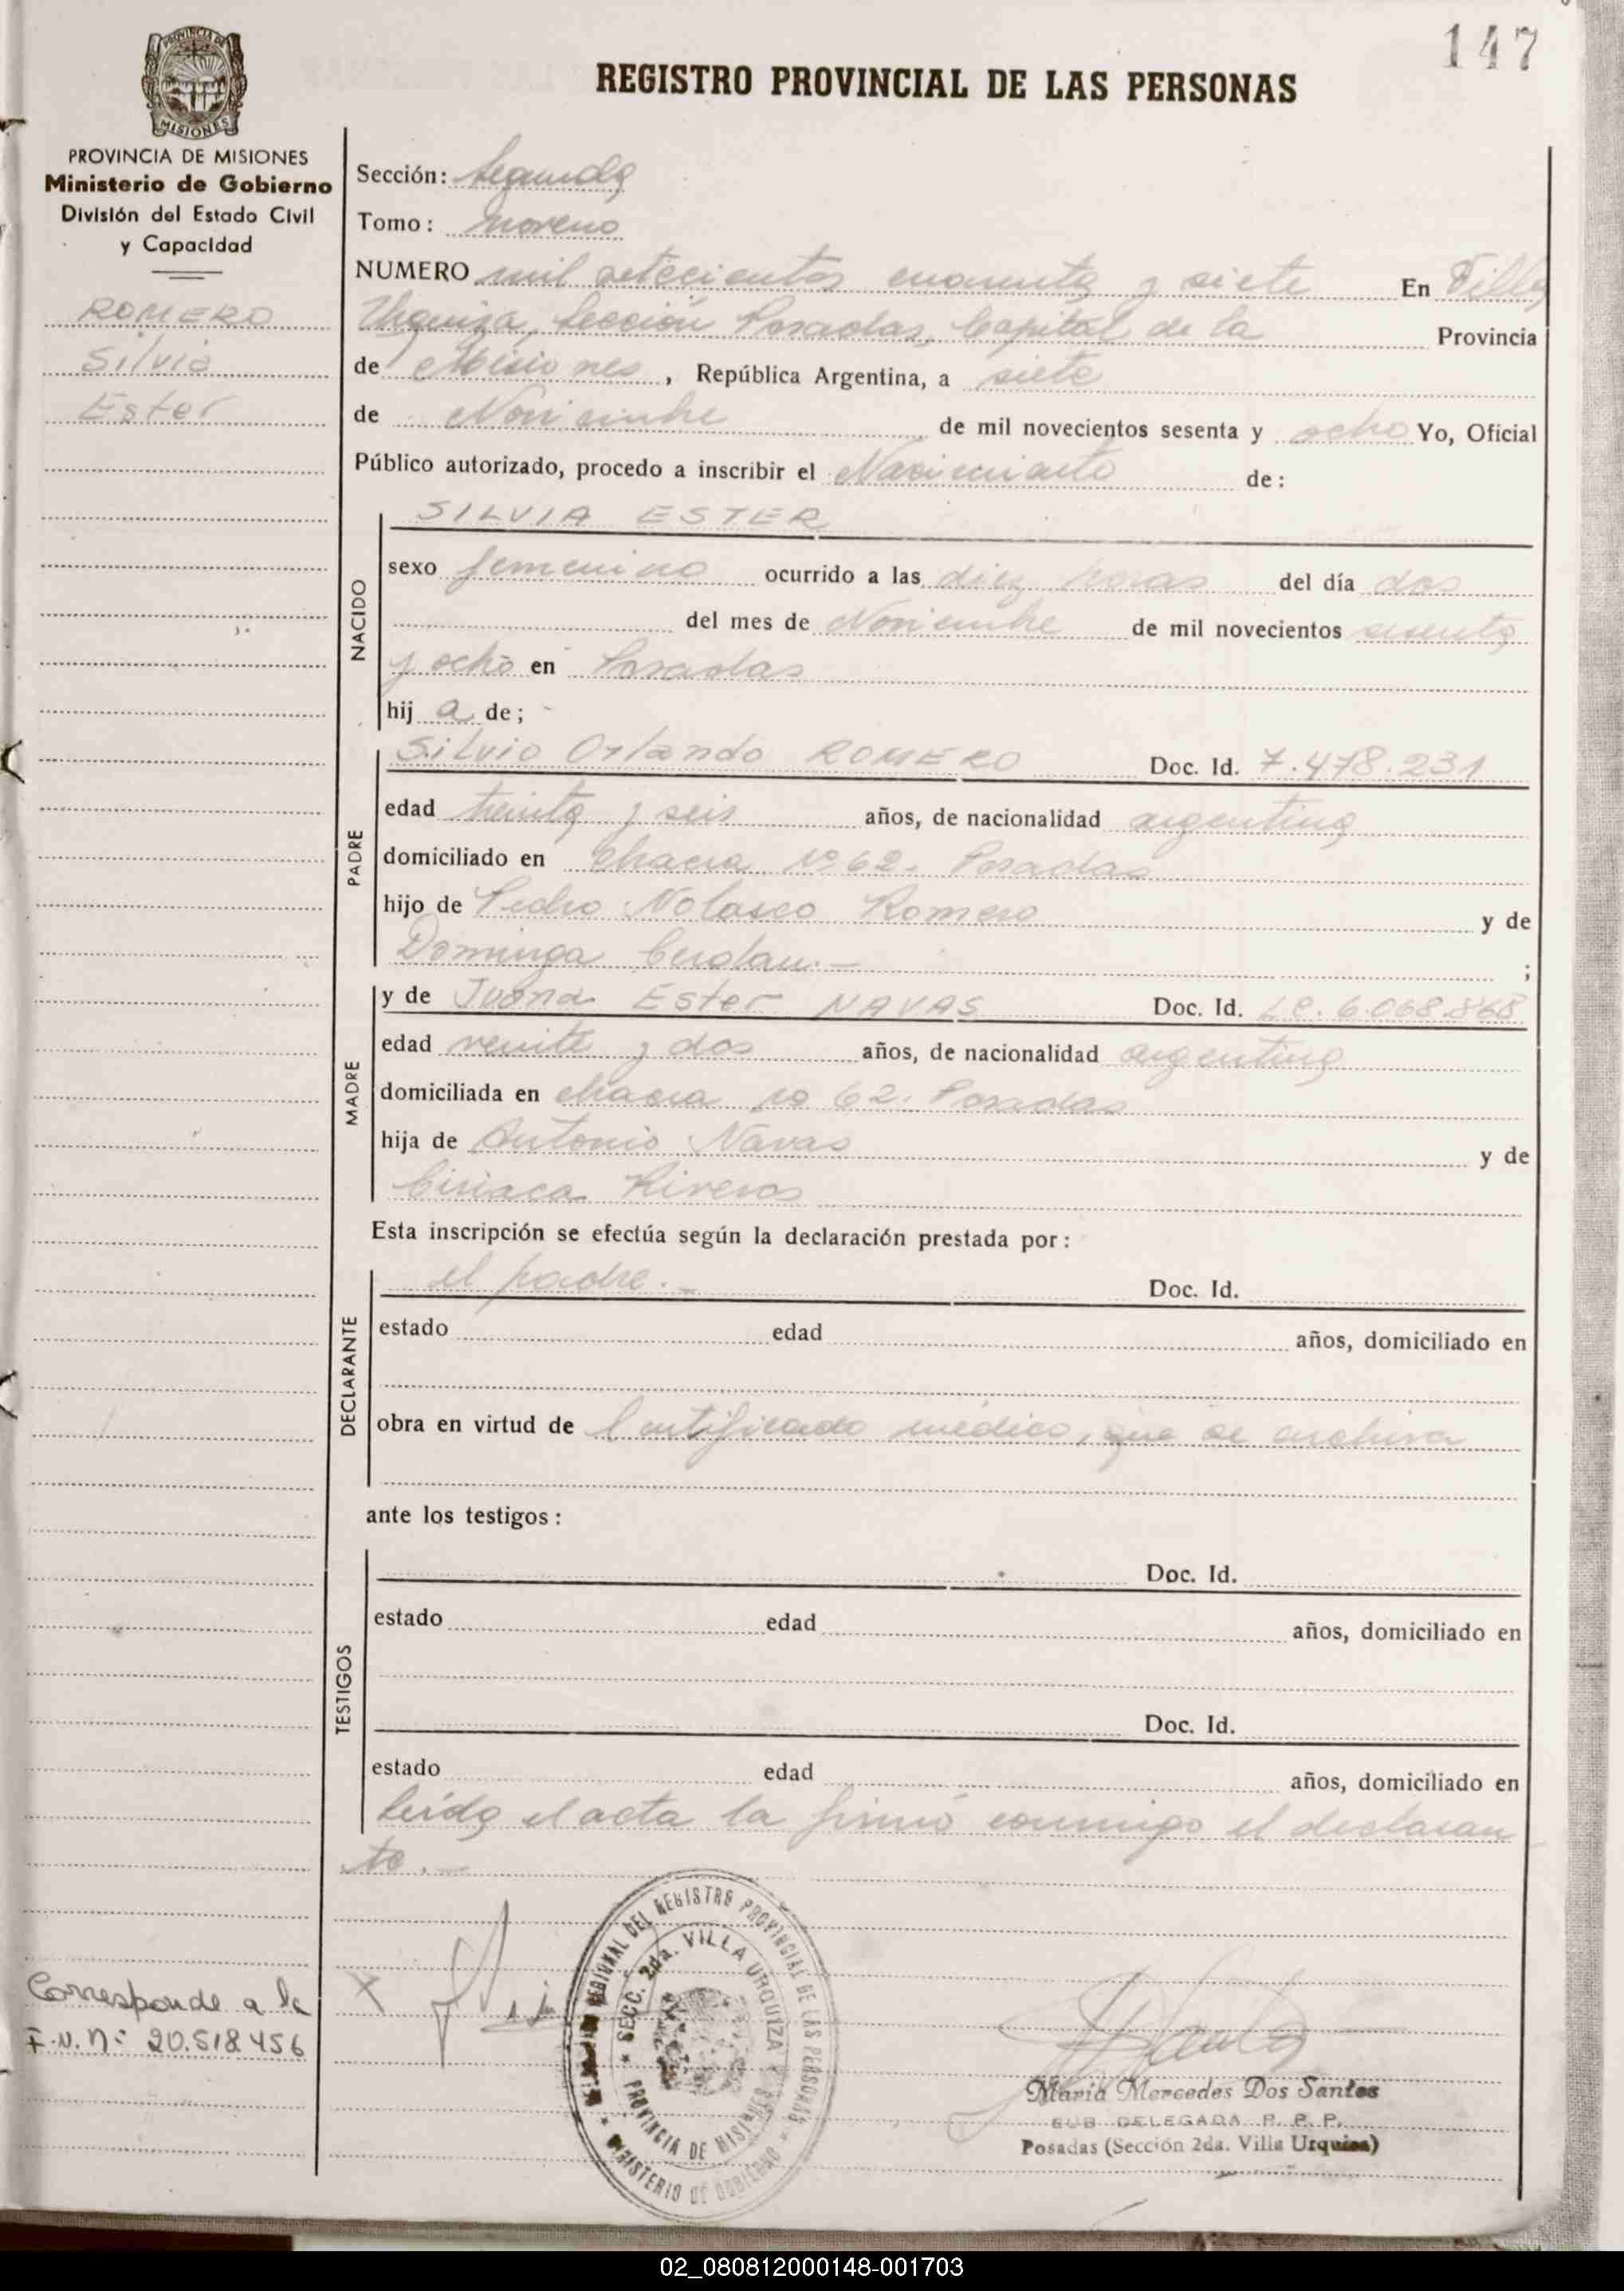 147
REGISTRO PROVINCIAL DE LAS PERSONAS
PROVINCIA DE MISIONES
MISIONES
PROVINCIA DE MISIONES
Ministerio de Gobierno
División del Estado Civil
y Capacidad
ROMERO
Silvia
Ester
Sección: Segunda
Tomo: noveno
NUMERO mil setecientos cuarenta y siete En Villa
Urquiza, Sección Posadas, Capital de la Provincia
de Misiones, República Argentina, a siete
de Noviembre de mil novecientos sesenta y ocho Yo, Oficial
Público autorizado, procedo a inscribir el Nacimiento de:
NACIDO
SILVIA ESTER
sexo femenino ocurrido a las diez horas del día dos
del mes de Noviembre de mil novecientos sesenta
y ocho en Posadas
hij a de;
PADRE
Silvio Orlando ROMERO Doc. Id. 7.478.231
edad treinta y seis años, de nacionalidad argentina
domiciliado en Chacra Nº 62. Posadas
hijo de Pedro Nolasco Romero y de
Dominga ;
MADRE
y de Juana Ester NAVAS Doc. Id. LC. 6.068.868
edad veinte y dos años, de nacionalidad argentina
domiciliada en chacra no 62. Posadas
hija de Antonio Navas y de
Ciriaca Riveros
Esta inscripción se efectúa según la declaración prestada por:
DECLARANTE
el padre.- Doc. Id.
estado edad años, domiciliado en
obra en virtud de Certificado médico, que se archiva
ante los testigos:
TESTIGOS
Doc. Id.
estado edad años, domiciliado en
Doc. Id.
estado edad años, domiciliado en
Leída el acta la firmó conmigo el declaran
te.-
Corresponde a la
F.N. nº: 20.518.456
X
REGISTRO PROVINCIAL DE LAS PERSONAS
MINISTERIO DE GOBIERNO
SECC. 2da. VILLA URQUIZA
PROVINCIA DE MISIONES
María Mercedes Dos Santos
SUB DELEGADA R. P. P.
Posadas (Sección 2da. Villa Urquiza)
02_080812000148-001703